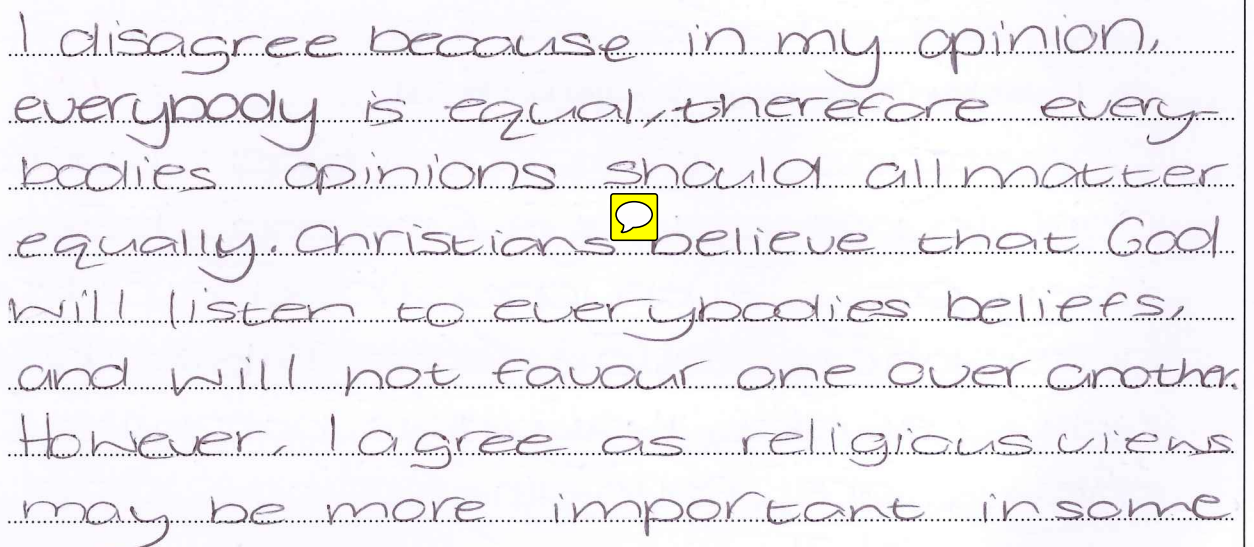 I disagree because in my opinion,
everybody is equal, therefore every-
bodies opinions should all matter
equally. Christians believe that God
will listen to everybodies beliefs,
and will not favour one over another.
However, I agree as religious views
may be more important in some